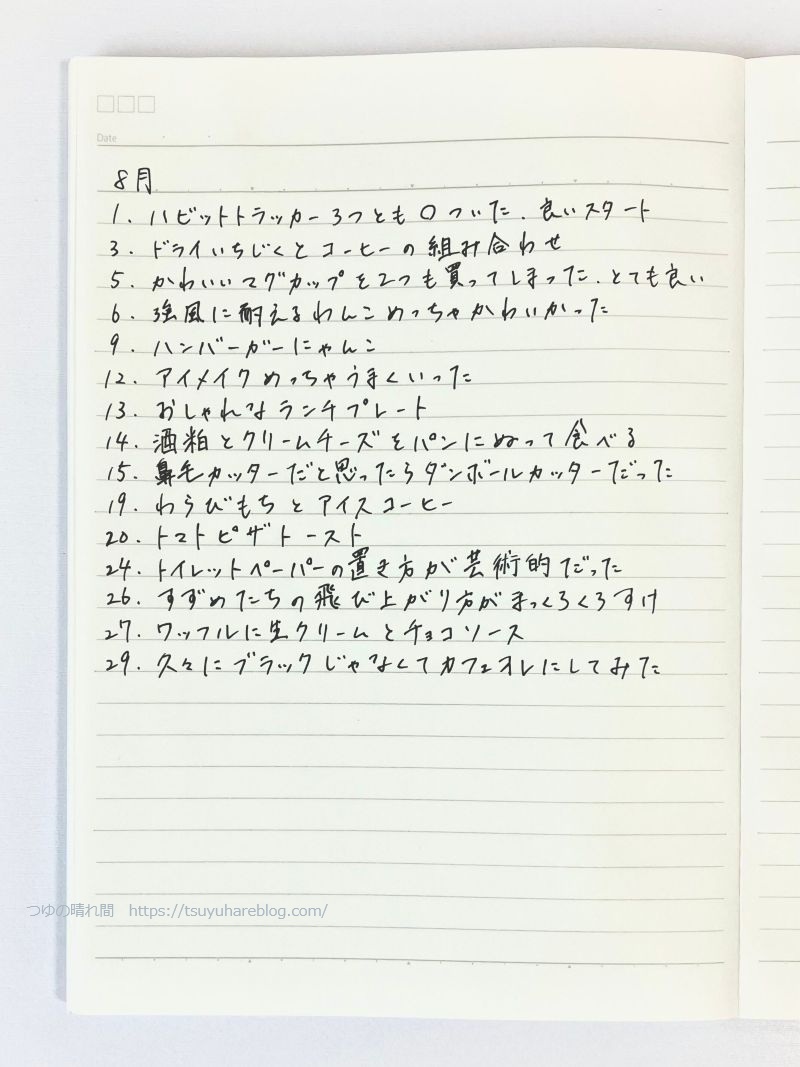 Date
8月
1. ハビットトラッカー3つとも○ついた.良いスタート
3. ドライいちじくとコーヒーの組み合わせ
5. かわいいマグカップを2つも買ってしまった.とても良い
6. 強風に耐えるわんこめっちゃかわいかった
9. ハンバーガーにゃんこ
12. アイメイクめっちゃうまくいった
13. おしゃれなランチプレート
14. 酒粕とクリームチーズをパンにぬって食べる
15. 鼻毛カッターだと思ったらダンボールカッターだった
19. わらびもちとアイスコーヒー
20. トマトピザトースト
24. トイレットペーパーの置き方が芸術的だった
26. すずめたちの飛び上がり方がまっくろくろすけ
27. ワッフルに生クリームとチョコソース
29. 久々にブラックじゃなくてカフェオレにしてみた
つゆの晴れ間 https://tsuyuhareblog.com/